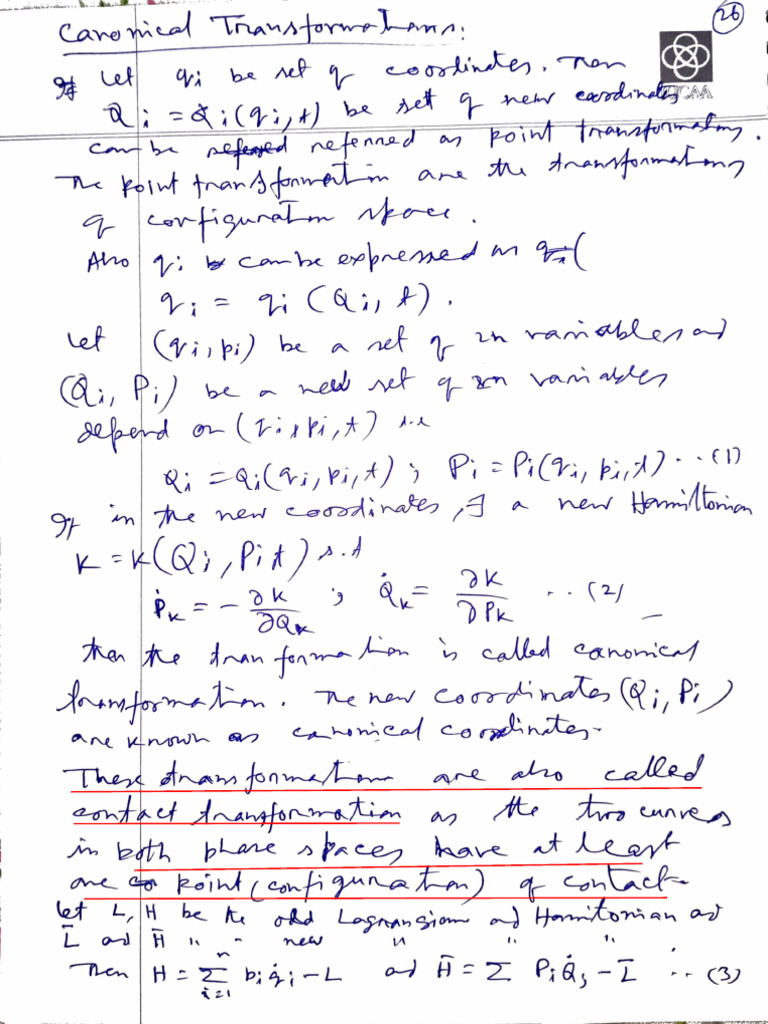 26
Canonical Transformations:
If Let qi be set of coordinates. Then
Qi = Qi(qi, t) be set of new coordinates
can be refered referred as point transformations.
The point transformation are the transformations
of configuration space.
Also qi b can be expressed as qi(
qi = qi (Qi, t).
Let (qi, pi) be a set of 2n variables and
(Qi, Pi) be a new set of 2n variables
depend on (qi, pi, t) i.e
Qi = Qi(qi, pi, t) ; Pi = Pi(qi, pi, t) ... (1)
If in the new coordinates, ∃ a new Hamiltonian
K = K(Qi, Pi t) s.t
Ṗk = - ∂K/∂Qk ; Q̇k = ∂K/∂Pk ... (2)
then the tranformation is called canonical
transformation. The new coordinates (Qi, Pi)
are known as canonical coordinates.
These transformation are also called
contact transformation as the two curves
in both phase spaces have at least
one point (configuration) of contact.
Let L, H be the old Lagrangian and Hamiltonian and
L̄ and H̄ " " new " " "
Then H = Σ_{i=1}^{n} pi q̇i - L and H̄ = Σ Pi Q̇i - L̄ ... (3)